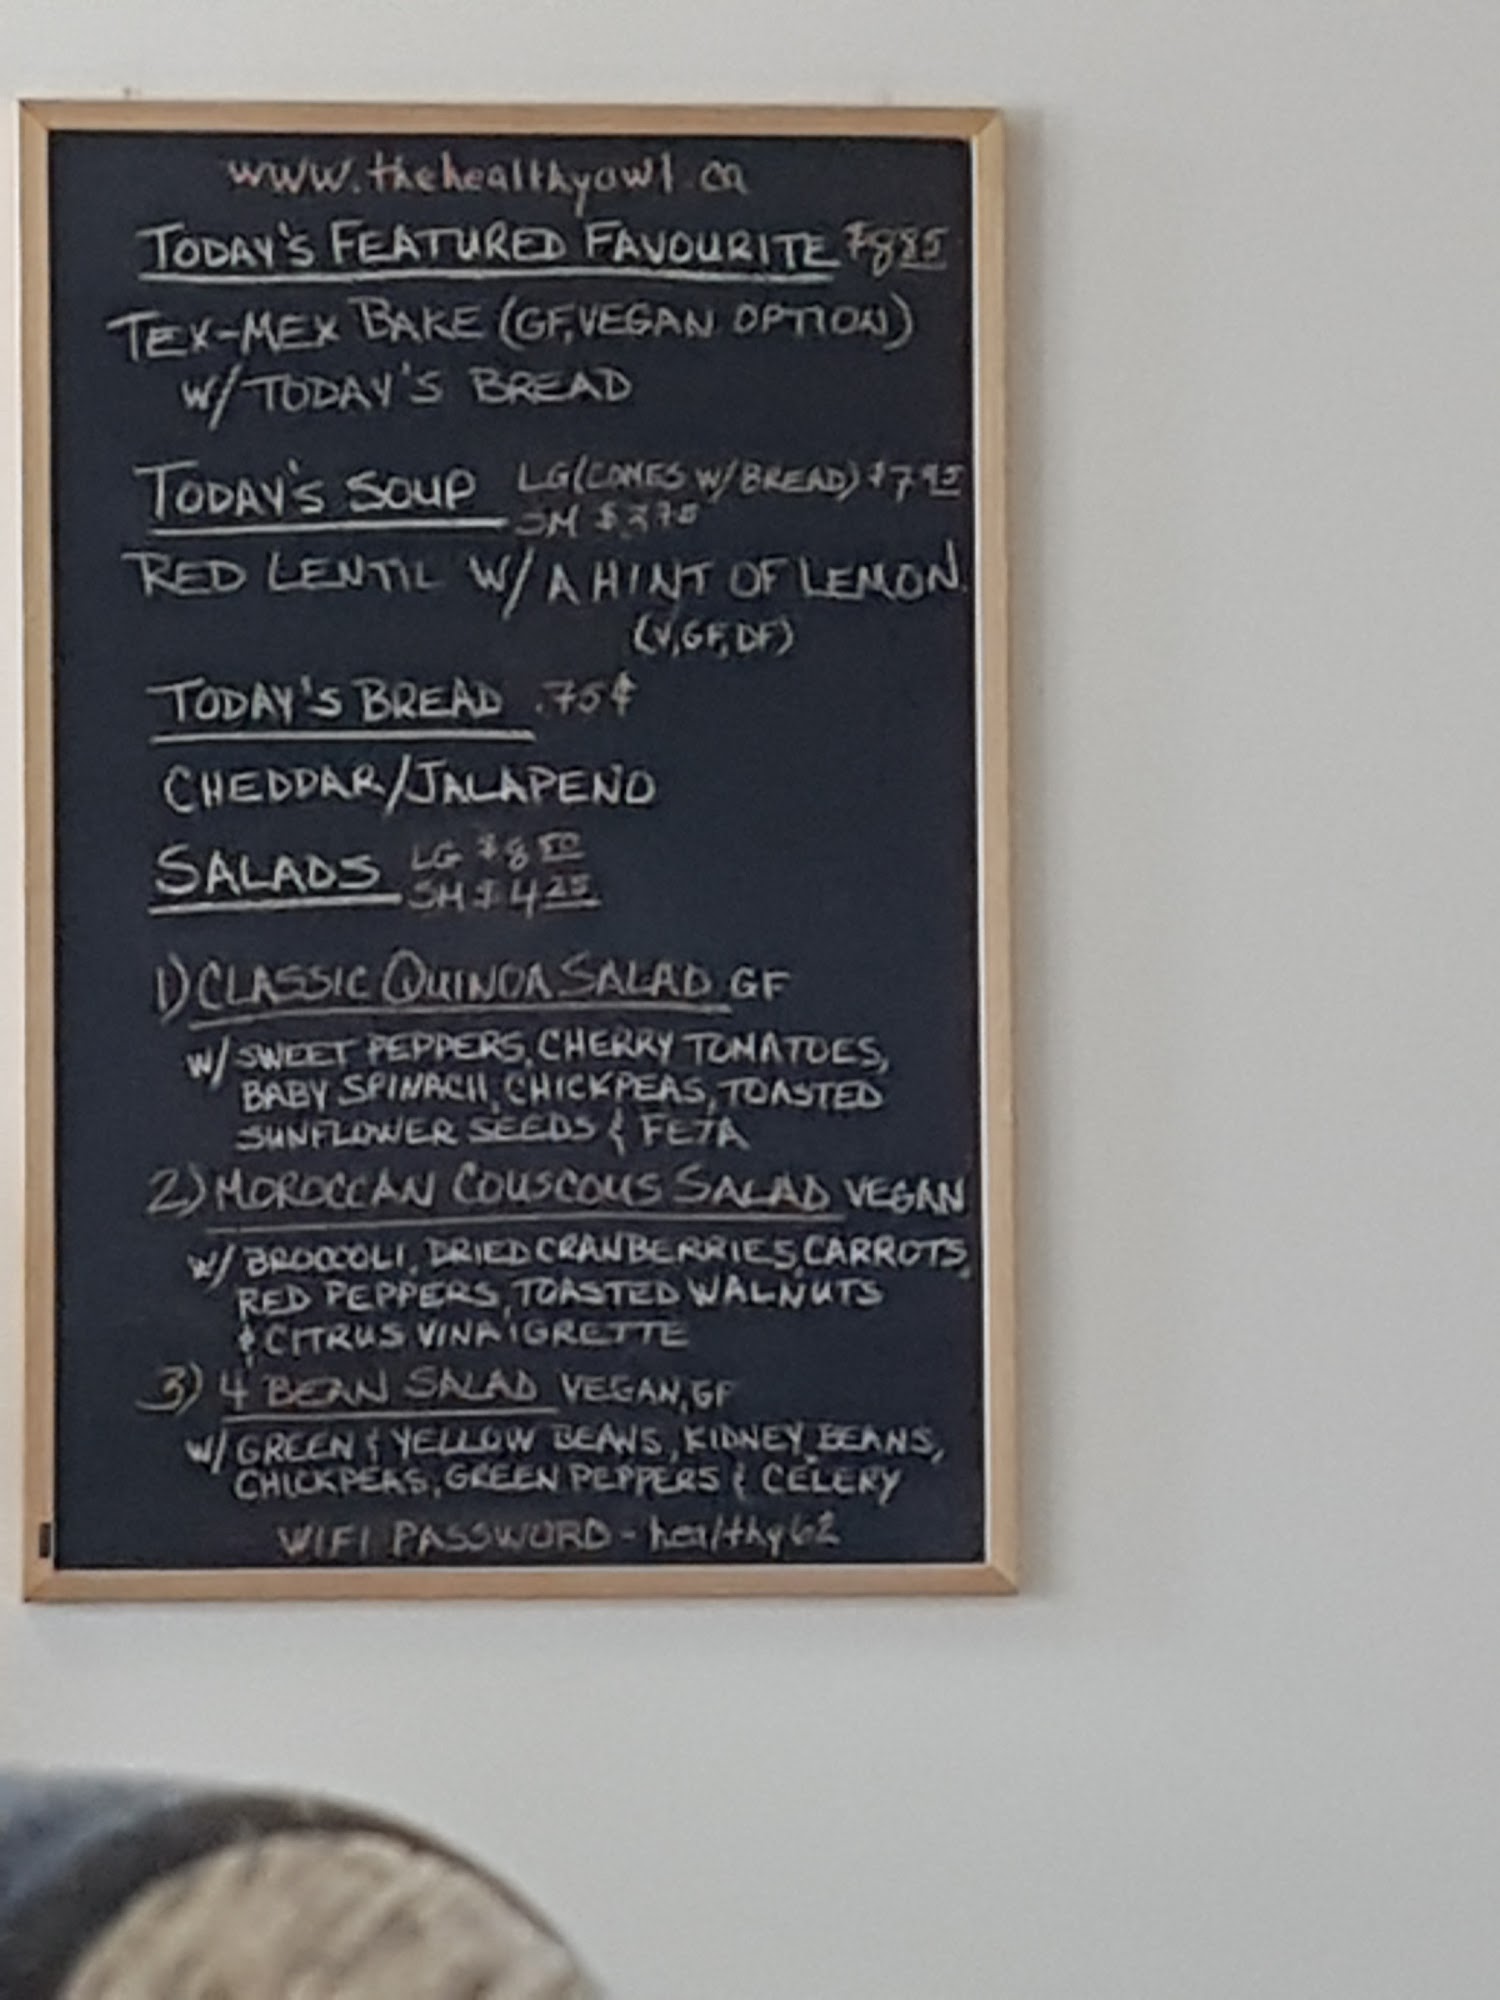 www.thehealthyowl.ca
TODAY'S FEATURED FAVOURITE $8.85
TEX-MEX BAKE (GF, VEGAN OPTION)
W/ TODAY'S BREAD
TODAY'S SOUP LG (COMES W/ BREAD) $7.95
SM $3.75
RED LENTIL W/ A HINT OF LEMON
(V, GF, DF)
TODAY'S BREAD .75¢
CHEDDAR/JALAPENO
SALADS LG $8.50
SM $4.25
1) CLASSIC QUINOA SALAD GF
W/ SWEET PEPPERS, CHERRY TOMATOES,
BABY SPINACH, CHICKPEAS, TOASTED
SUNFLOWER SEEDS & FETA
2) MOROCCAN COUSCOUS SALAD VEGAN
W/ BROCCOLI, DRIED CRANBERRIES, CARROTS,
RED PEPPERS, TOASTED WALNUTS
& CITRUS VINAIGRETTE
3) 4 BEAN SALAD VEGAN, GF
W/ GREEN & YELLOW BEANS, KIDNEY BEANS,
CHICKPEAS, GREEN PEPPERS & CELERY
WIFI PASSWORD - healthy62